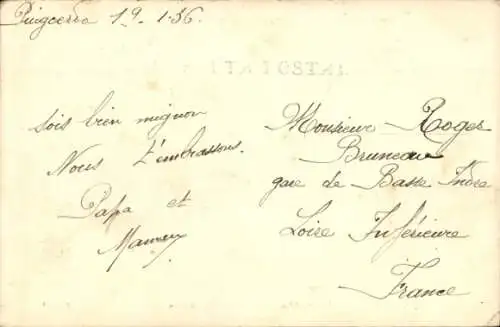 Puigcerda 19.1.36.
TARJETA POSTAL
Sois bien mignon
Nous t'embrassons.
Papa et
Maman
Monsieur Roger
Bruneau
gare de Basse Indre
Loire Inférieure
France